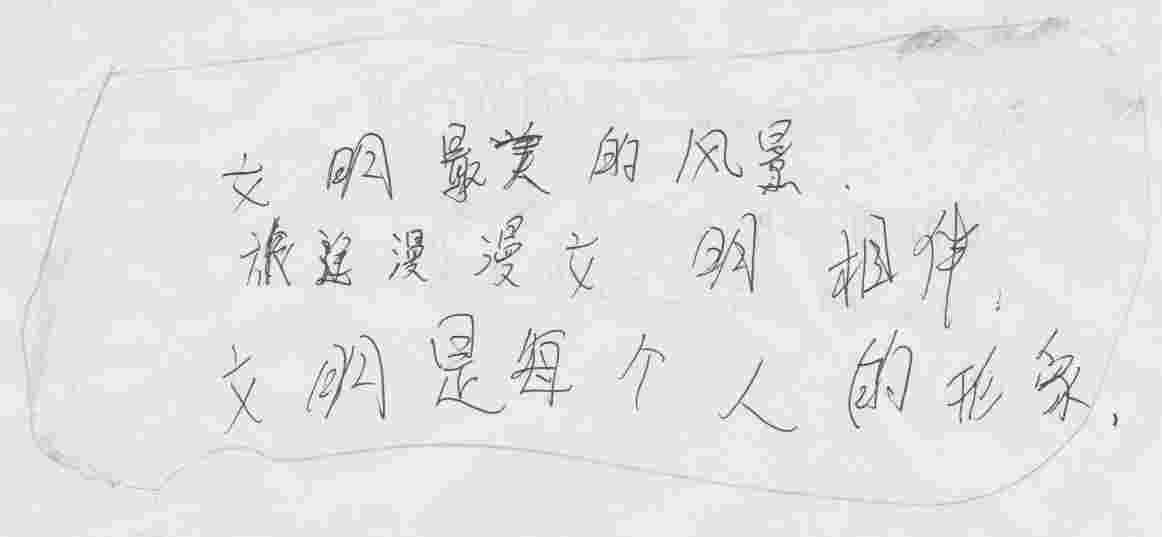 文明最美的风景.
旅途漫漫文明相伴,
文明是每个人的形象,